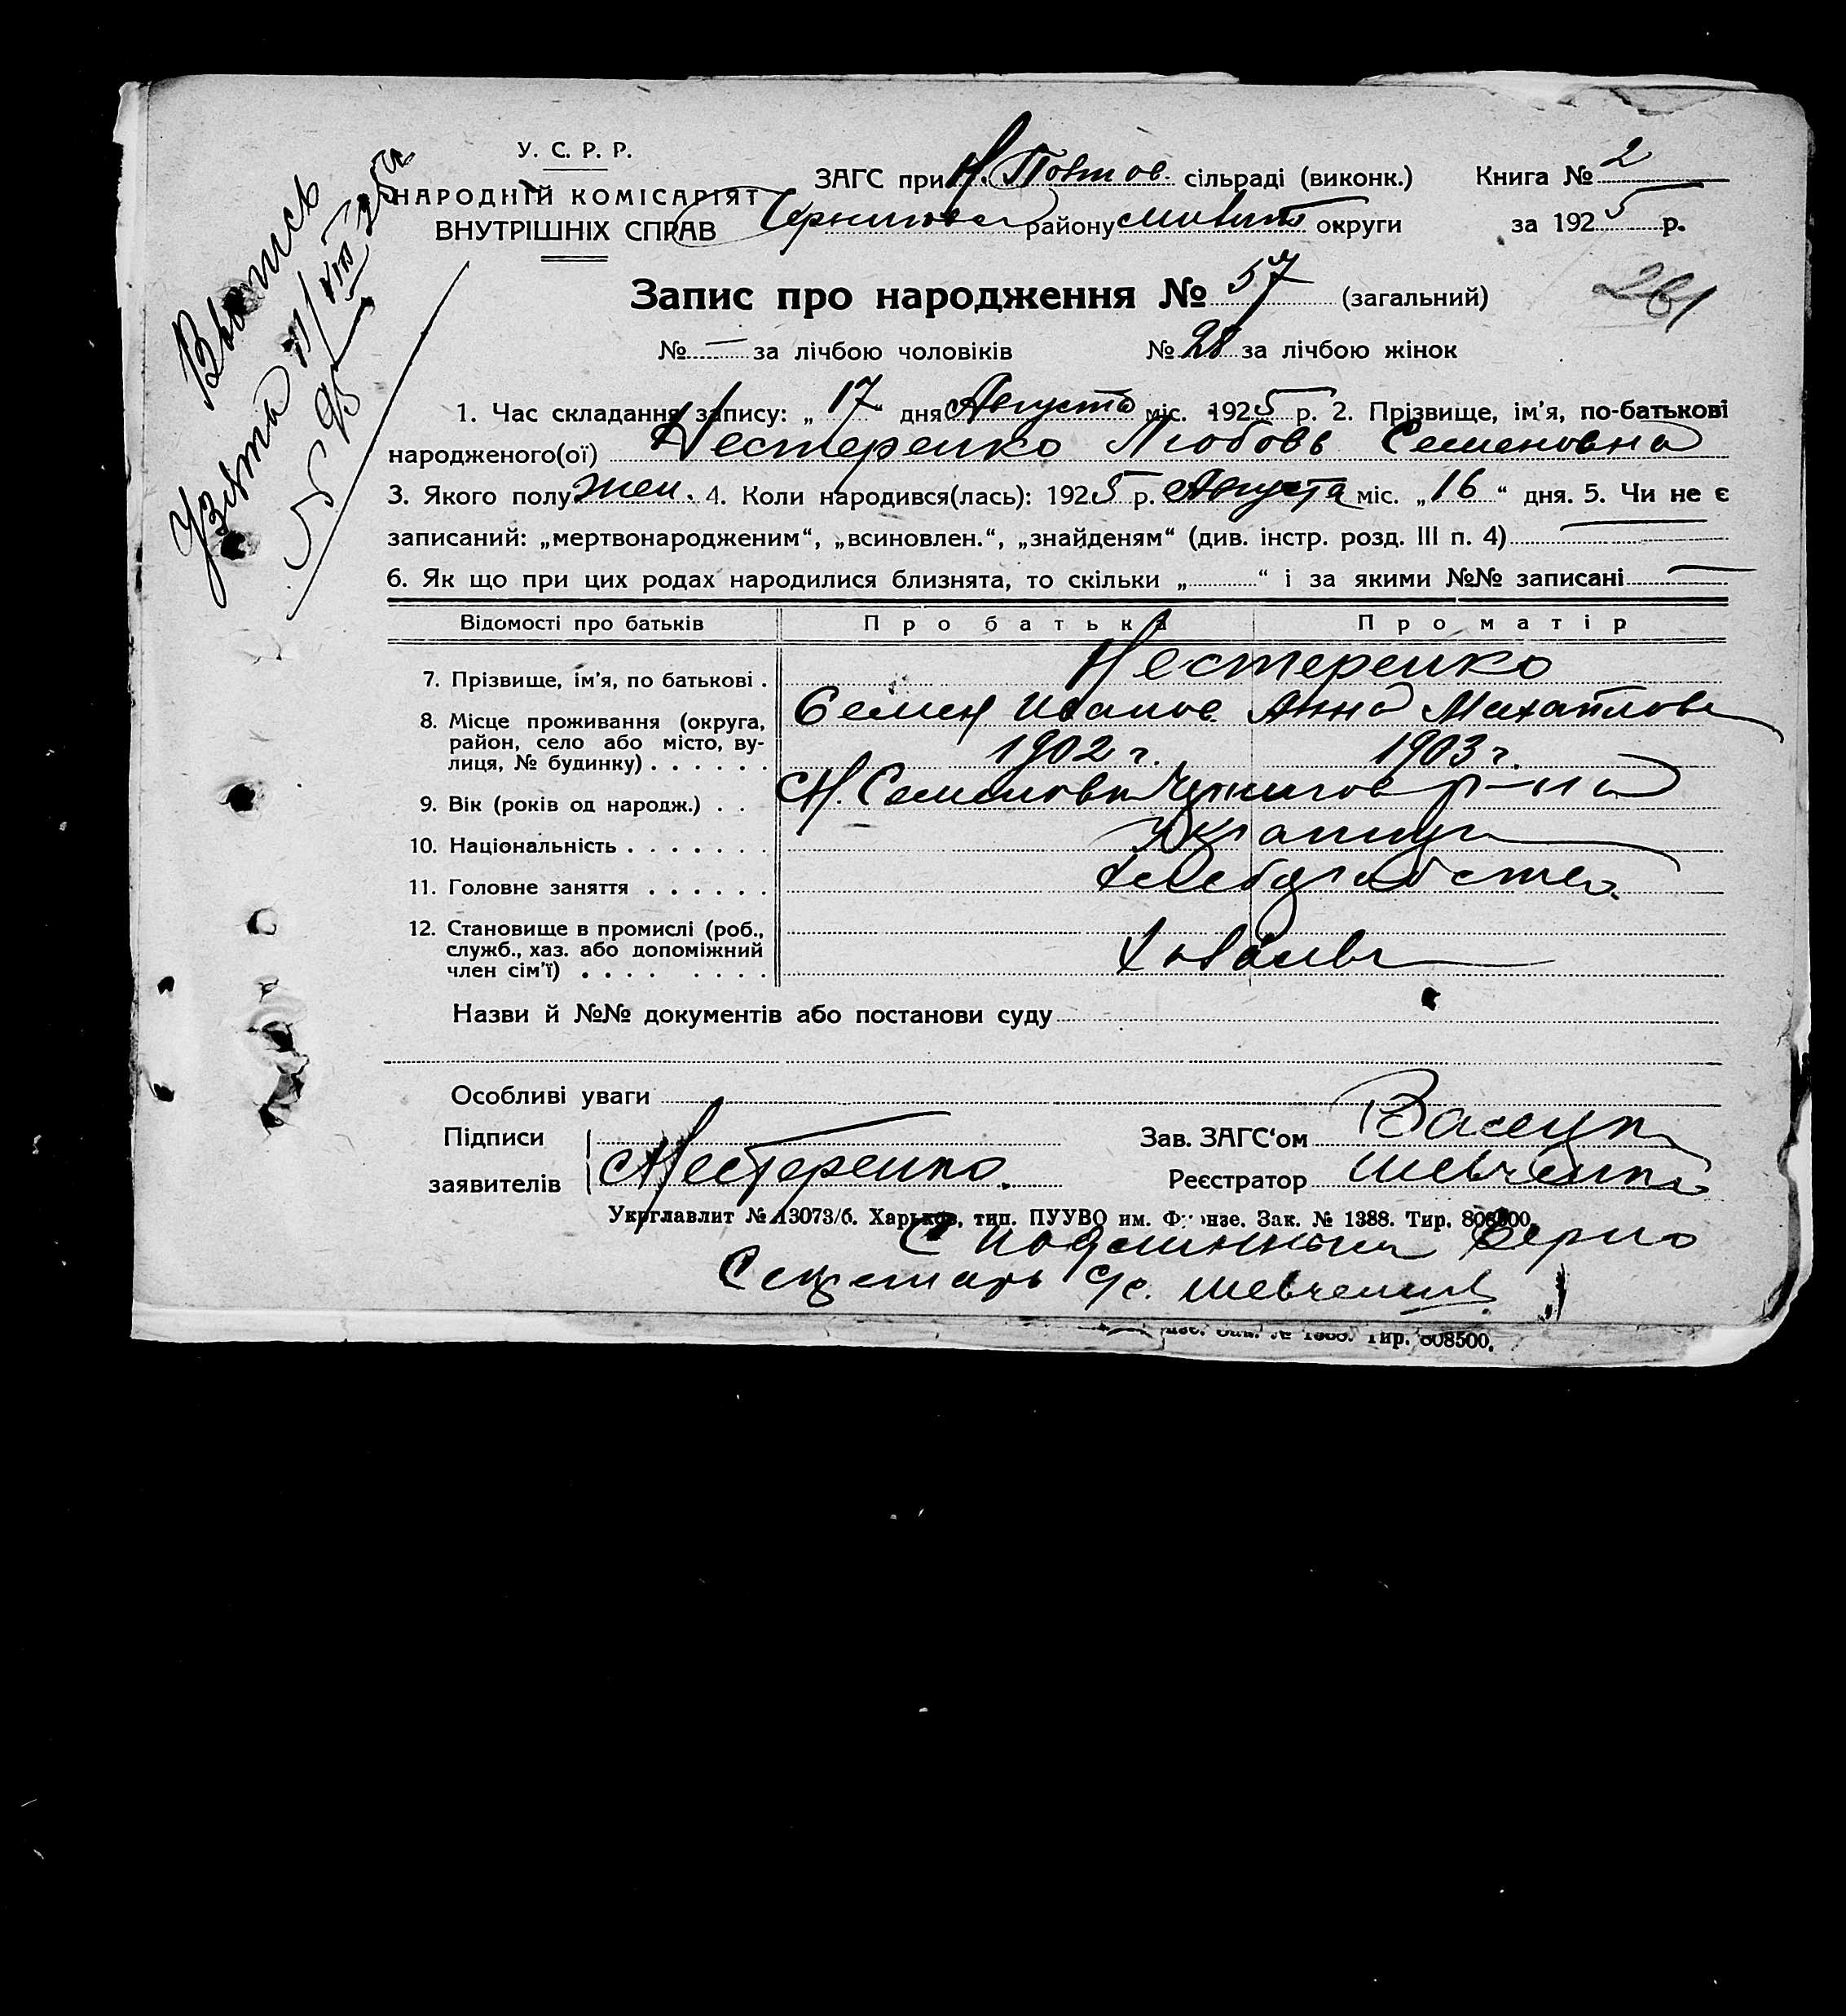 У. С. Р. Р.
НАРОДНІЙ КОМІСАРІЯТ
ВНУТРІШНІХ СПРАВ
ЗАГС при Н. Полтов. сільраді (виконк.) Книга № 2
Чернигов району округи за 1925 р.
Запис про народження № 57 (загальний)
261
№ — за лічбою чоловіків № 28 за лічбою жінок
Выпись
Узята
1. Час складання запису: „ 17 " дня Августа міс. 1925 р. 2. Прізвище, ім'я, по-батькові
народженого(ої) Нестеренко Любовь Семеновна
3. Якого полу жен. 4. Коли народився(лась): 1925 р. Августа міс. „ 16 “ дня. 5. Чи не є
записаний: „мертвонародженим“, „всиновлен.“, „знайденям“ (див. інстр. розд. III п. 4) —
6. Як що при цих родах народилися близнята, то скільки „ “ і за якими №№ записані —
Відомості про батьків Про батька Про матір
7. Прізвище, ім'я, по батькові . Нестеренко
8. Місце проживання (округа, Семен Иванов Анна Михайлов
район, село або місто, ву-
лиця, № будинку) . . . . . . 1902 г. 1903 г.
9. Вік (років од народж.) . . Н. Семеновка Чернигов р-на
10. Національність . . . . . . . Украинцы
11. Головне заняття . . . . . . хлебопашество
12. Становище в промислі (роб.,
служб., хаз. або допоміжний
член сім'ї) . . . . . . . . Хозяева
Назви й №№ документів або постанови суду
Особливі уваги
Підписи
заявителів Нестеренко.
Зав. ЗАГС‘ом
Реєстратор Шевченко
Укрглавлит № 13073/б. Харьков, тип. ПУУВО им. Фрунзе. Зак. № 1388. Тир. 808500.
С подлинным верно
Секретарь с/с. Шевченко
Зак. № 1388. Тир. 808500.